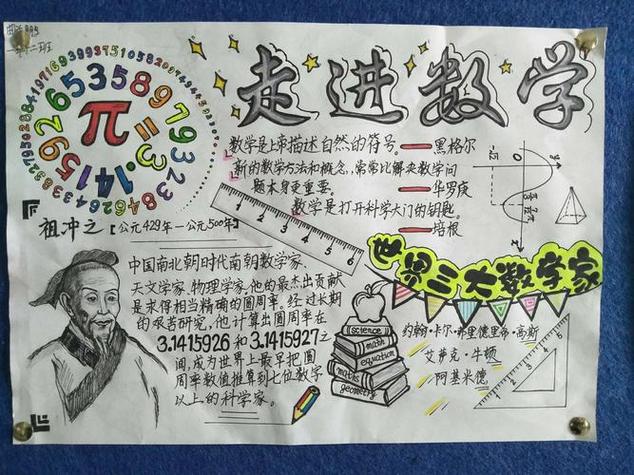 走进数学
π=3.141592653589793238462643383279
数学是上帝描述自然的符号。
——黑格尔
新的数学方法和概念,常常比解决数学问
题本身更重要。
——华罗庚
数学是打开科学大门的钥匙。
——培根
1 2 3 4 5 6
祖冲之【公元429年—公元500年】
中国南北朝时代南朝数学家、
天文学家、物理学家,他的最杰出贡献
是求得相当精确的圆周率。经过长期
的艰苦研究,他计算出圆周率在
3.1415926和3.1415927之
间,成为世界上最早把圆
周率数值推算到七位数字
以上的科学家。
世界三大数学家
约翰·卡尔·弗里德里希·高斯
艾萨克·牛顿
阿基米德
science
math
equation
maths
geometry